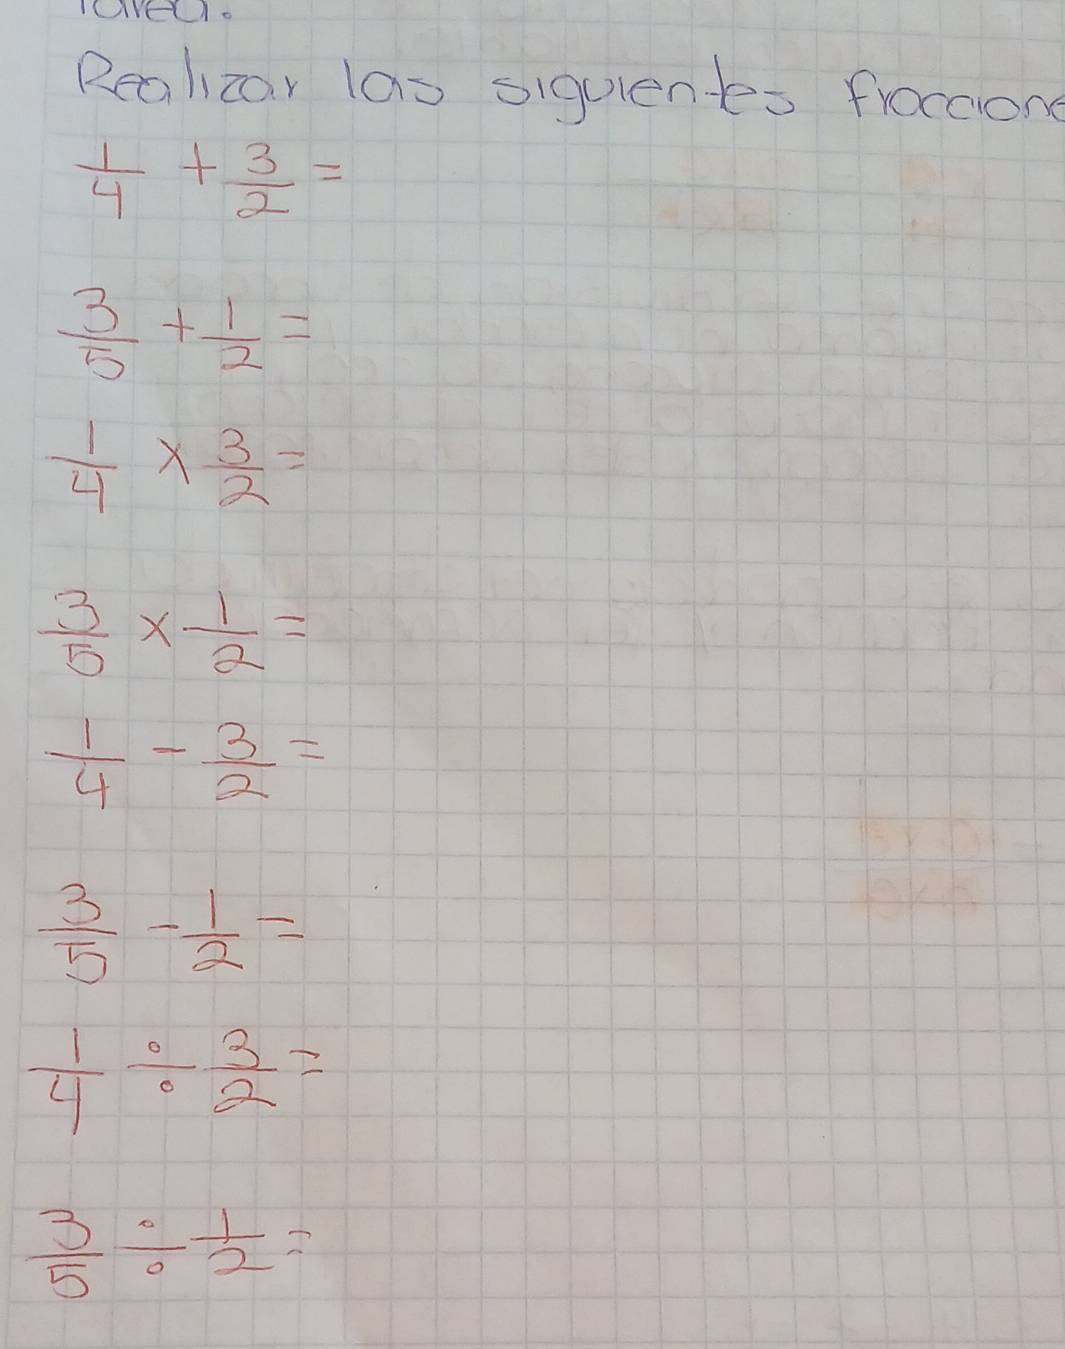 Tarea.
Realizar las siguientes fraccione
1/4 + 3/2 =
3/5 + 1/2 =
1/4 × 3/2 =
3/5 × 1/2 =
1/4 - 3/2 =
3/5 - 1/2 =
1/4 ÷ 3/2 =
3/5 ÷ 1/2 =